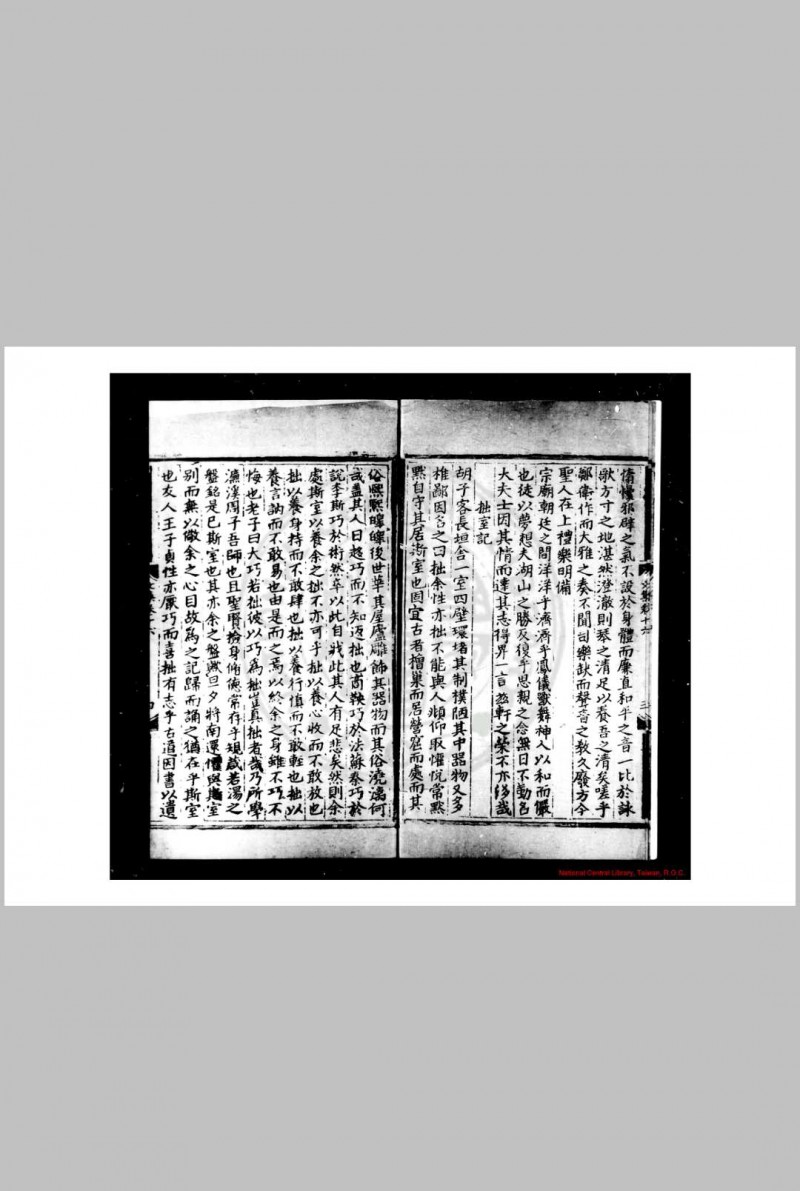 惰慢邪僻之氣不設於身體而廉直和平之音一比於詠
歌方寸之地湛然澄澈則琴之清足以養吾之清矣嗟乎
鄭衛作而大雅之奏不聞司樂缺而聲音之教久廢方今
聖人在上禮樂明備
宗廟朝廷之間洋洋乎濟濟乎鳳儀獸舞神人以和而儼
也徒以夢想夫湖山之勝反復乎思親之念無日不勤名
大夫士因其情而達其志得昇一言茲軒之榮不亦侈哉
拙室記
胡子客長垣舍一室四壁環堵其制樸陋其中器物又多
椎鄙因名之曰拙余性亦拙不能與人頫仰取懽悅常默
默自守其居斯室也固宜古者橧巢而居營窟而處而其
俗熙熙皞皞後世華其屋廬雕飾其器物而其俗澆漓何
哉蓋其人日趨巧而不知返拙也商鞅巧於法蘇秦巧於
說李斯巧於術然卒以此自戕此其人有足悲矣然則余
處斯室以養余之拙不亦可乎拙以養心收而不敢放也
拙以養身持而不敢肆也拙以養行慎而不敢輕也拙以
養言訥而不敢易也由是而之焉以終余之身雖不巧不
悔也老子曰大巧若拙彼以巧為拙豈真拙者哉乃所學
濂溪周子吾師也且聖賢撿身脩德常存乎規箴若湯之
盤銘是已斯室也其亦余之盤歟旦夕將南還懼與斯室
別而無以儆余之心目故為之記歸而誦之猶在乎斯室
也友人王子貞性亦厭巧而喜拙有志乎古道因書以遺
文集卷十六
三
四
National Central Library, Taiwan, R.O.C.